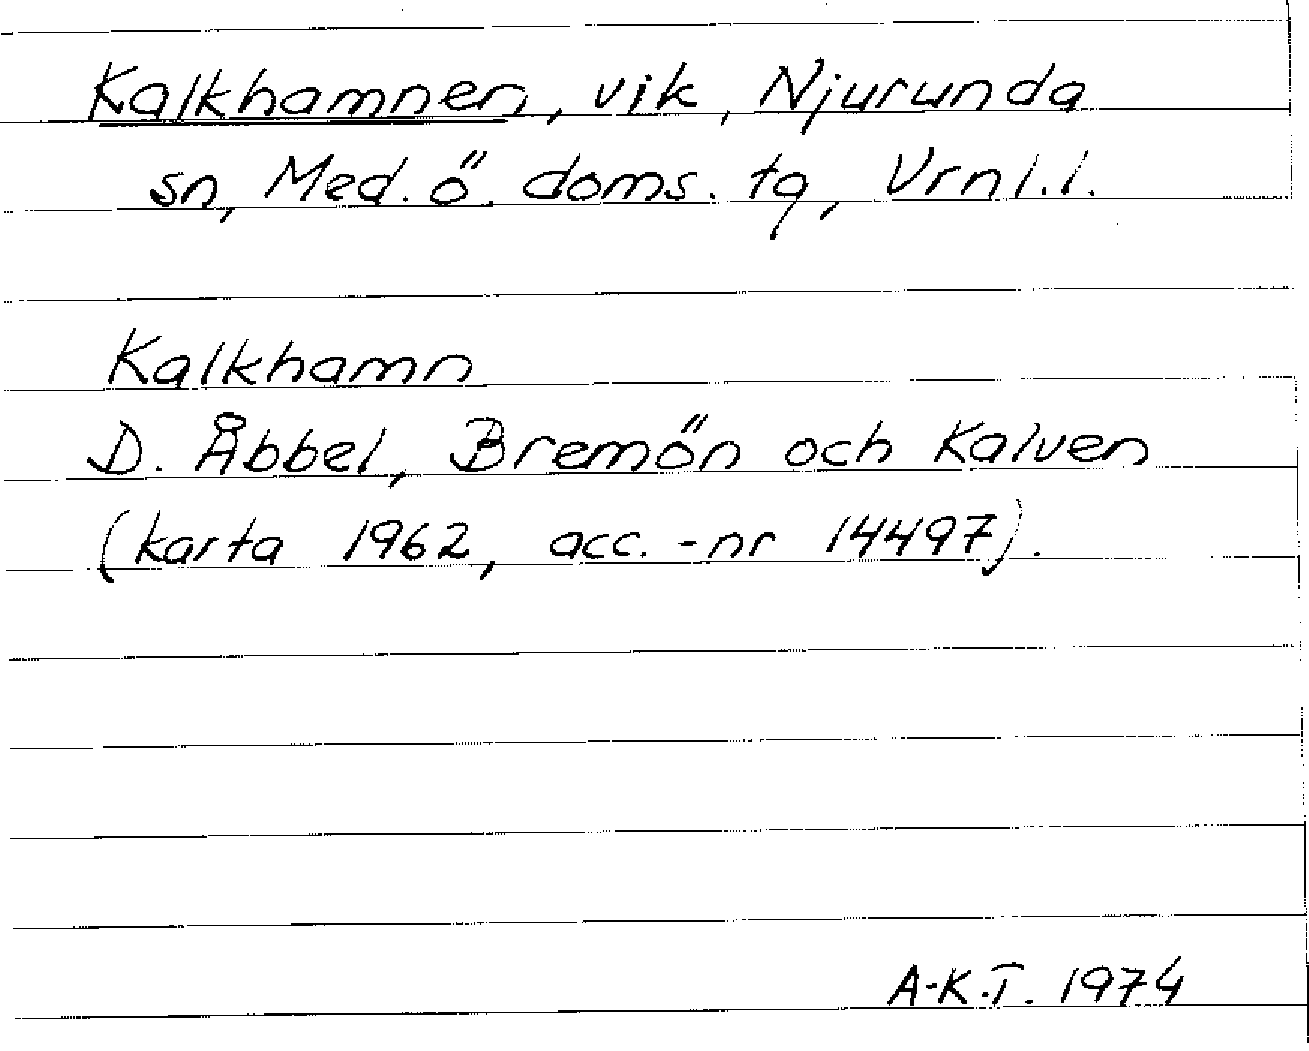 Kalkhamnen, vik, Njurunda
sn, Med. ö. doms. tg, Vrnl.l.
Kalkhamn
D. Åbbel, Bremön och Kalven
(karta 1962, acc.-nr 14497).
A-K.T. 1974